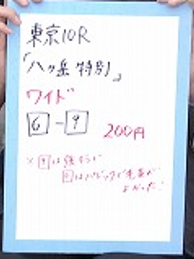 東京10R
「八ヶ岳特別」
ワイド
6-9
200円
※9は強そう♡
6はパドックで毛並が
よかった!